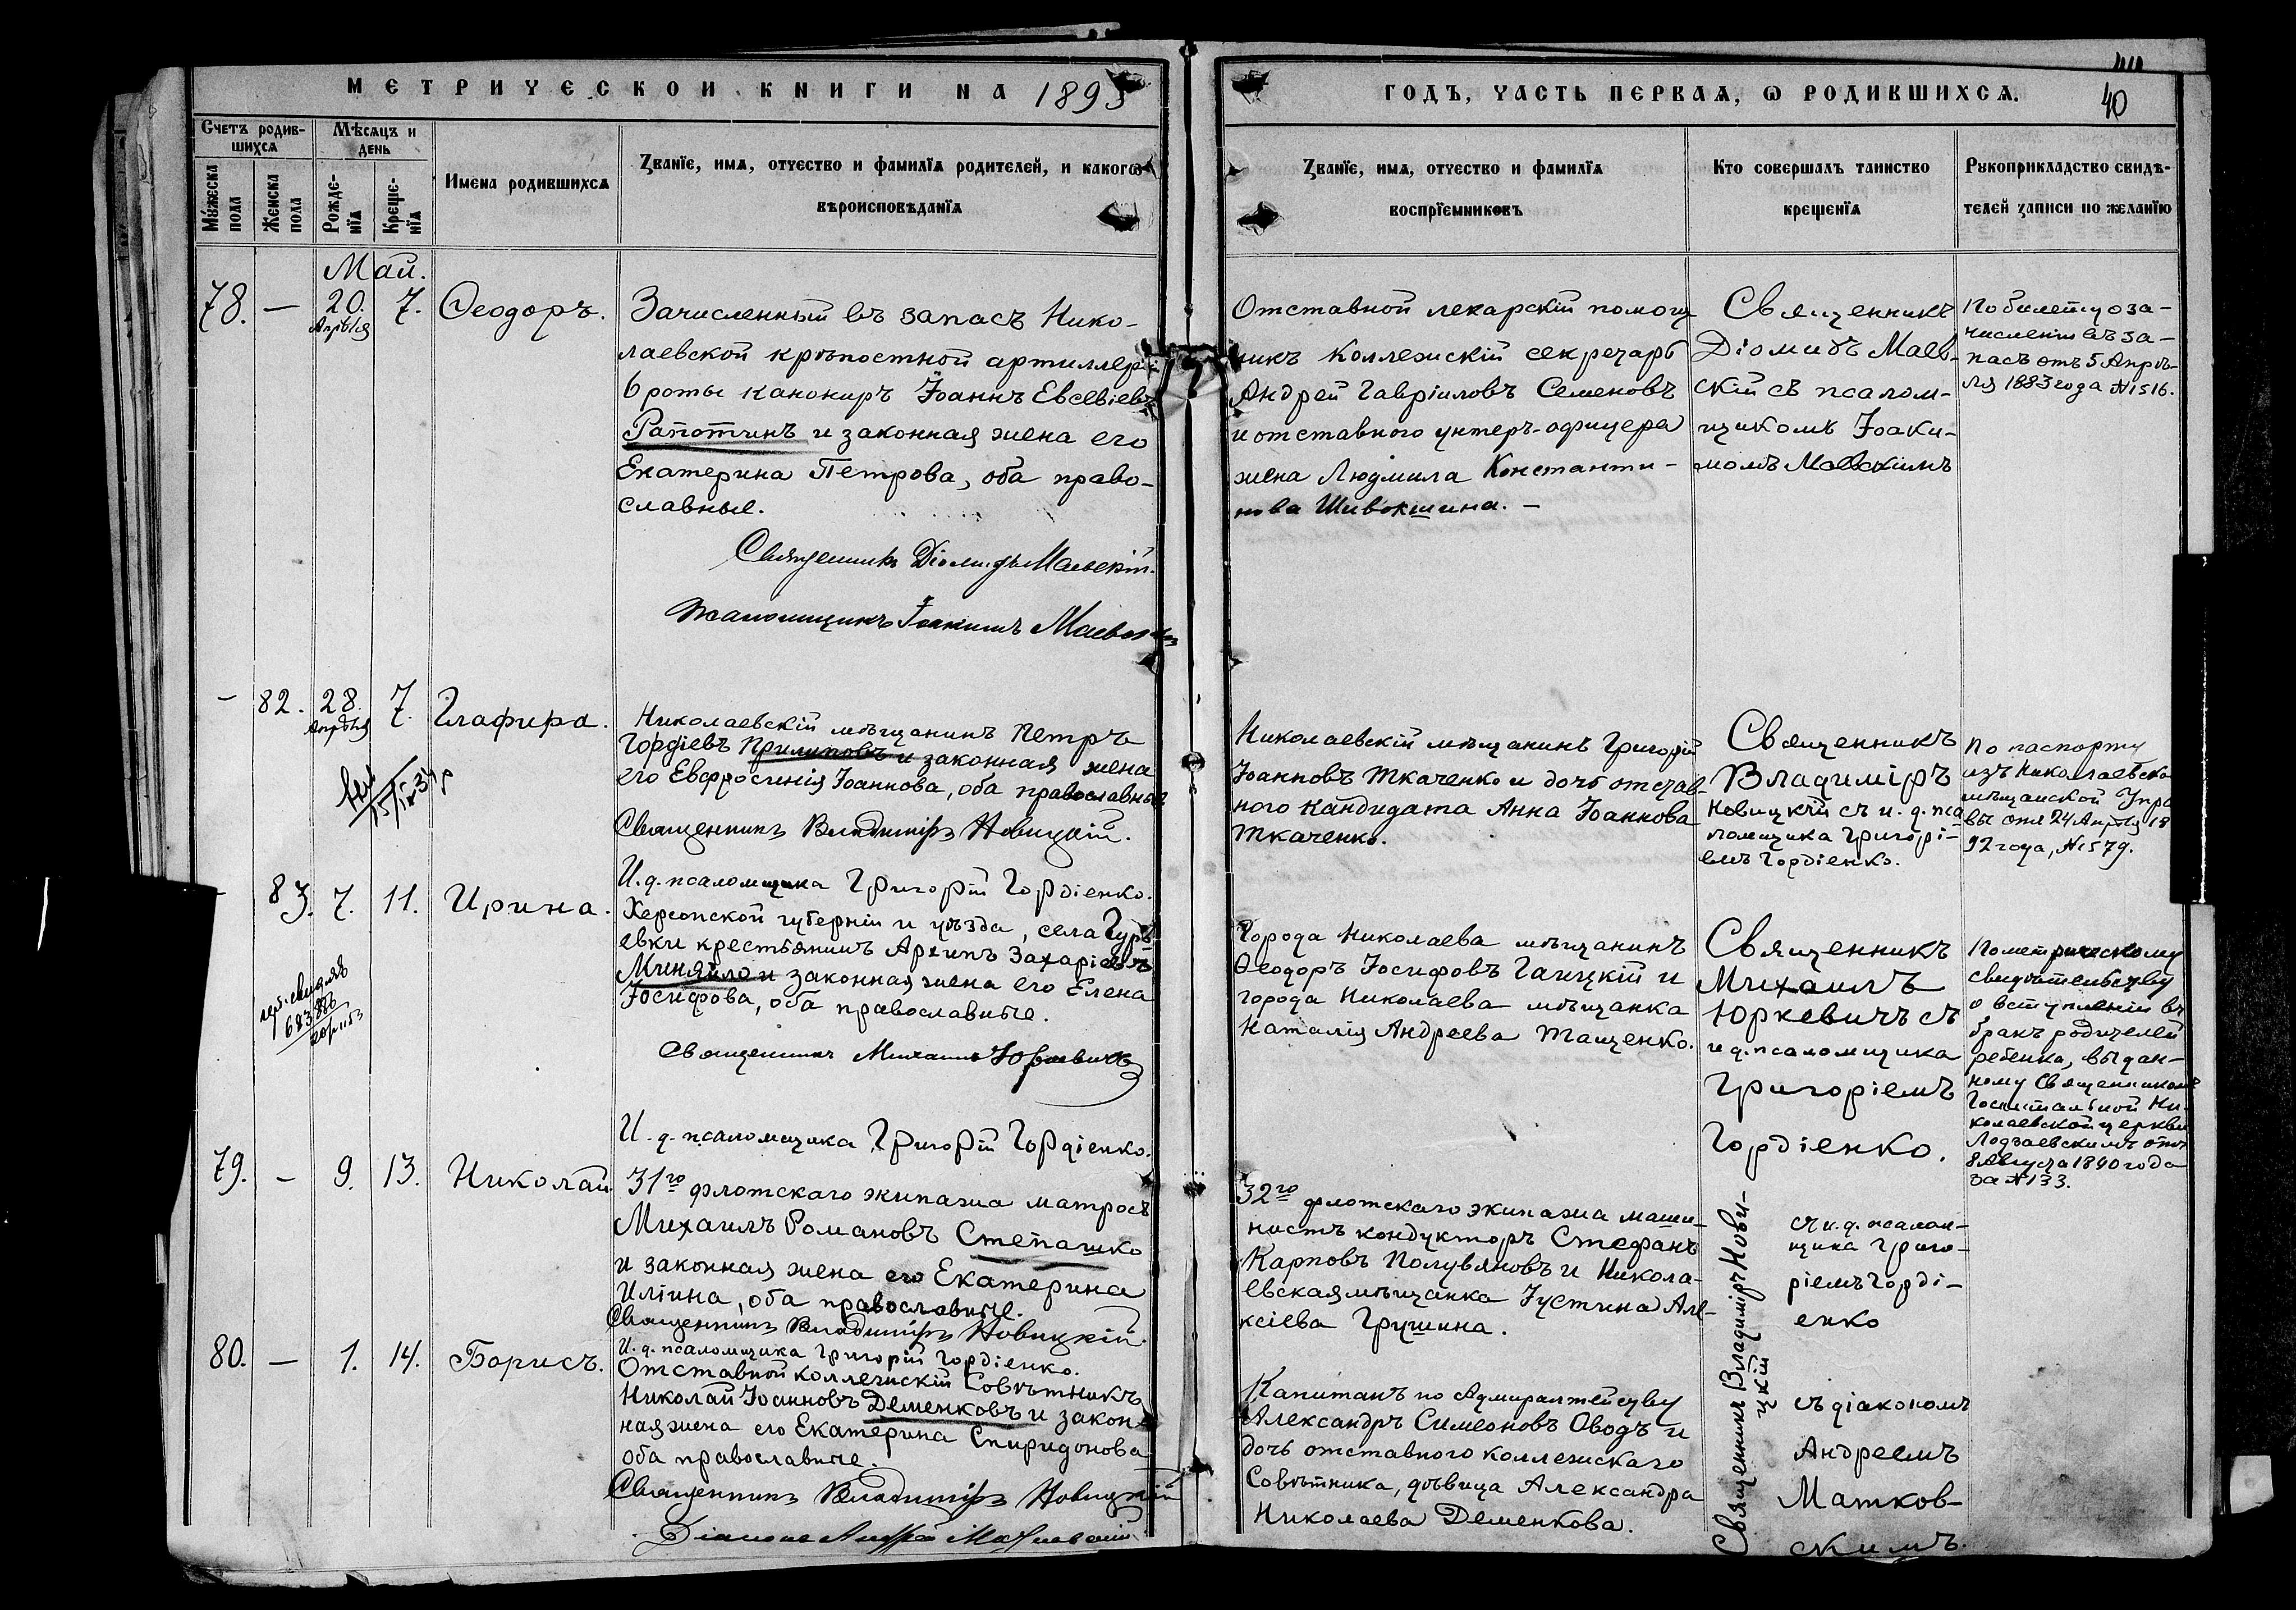 МЕТРИЧЕСКОЙ КНИГИ НА 1893
ГОДЪ, ЧАСТЬ ПЕРВАЯ, Ѡ РОДИВШИХСЯ.
40
Счетъ родив-
шихся
Мѣсяцъ и
день
Мужеска
пола
Женска
пола
Рожде-
нія
Креще-
нія
Имена родившихся
Званіе, имя, отчество и фамилія родителей, и какогѡ
вѣроисповѣданія
Званіе, имя, отчество и фамилія
воспріемниковъ
Кто совершалъ таинство
крещенія
Рукоприкладство свидѣ-
телей записи по желанію
Май.
78. — 20. Апрѣля 7. Ѳеодоръ.
Зачисленный въ запасъ Нико-
лаевской крѣпостной артиллеріи
6 роты канониръ Іоаннъ Евсевіевъ
Рапотинъ и законная жена его
Екатерина Петрова, оба право-
славные.
Священникъ Діомидъ Маевскій.
Псаломщикъ Іоакимъ Маевскій
Отставной лекарскій помощ
никъ Коллежскій секретарь
Андрей Гавріиловъ Семеновъ
и отставного унтеръ-офицера
жена Людмила Константи-
нова Шивокшина. —
Священникъ
Діомидъ Маев-
скій съ псалом-
щикомъ Іоаки-
момъ Маевскимъ
По билету о за-
численіи въ за-
пасъ отъ 5 Апрѣ-
ля 1883 года №1516.
— 82. 28. Апрѣля 7. Глафира.
Николаевскій мѣщанинъ Петръ
Гордіевъ Прилиповъ и законная жена
его Евфросинія Іоаннова, оба православные
Священникъ Владиміръ Новицкій.
И. д. псаломщика Григорій Гордіенко.
Николаевскій мѣщанинъ Григорій
Іоанновъ Ткаченко и дочь отстав-
ного кандидата Анна Іоаннова
Ткаченко.
Священникъ
Владиміръ
Новицкій съ и. д. пса
ломщика Григорі-
емъ Гордіенко.
По паспорту
изъ Николаевско
мѣщанской Упра
вы отъ 24 Апрѣля 18
92 года, №1579.
— 83. 7. 11. Ирина.
Херсонской губерніи и уѣзда, села Гурь
евки крестьянинъ Архипъ Захаріевъ
Миняйло и законная жена его Елена
Іосифова, оба православные.
Священникъ Михаилъ Юркевичъ
И. д. псаломщика Григорій Гордіенко.
Города Николаева мѣщанинъ
Ѳеодоръ Іосифовъ Гаицкій и
города Николаева мѣщанка
Наталія Андреева Тащенко.
Священникъ
Михаилъ
Юркевичъ съ
и д. псаломщика
Григоріемъ
Гордіенко.
По метрическому
свидѣтельству
о вступленіи въ
бракъ родителей
ребенка, выдан-
ному Священникомъ
Госпитальной Ни-
колаевской церкви
отъ
8 Августа 1890 года
за №133.
79. — 9. 13. Николай
31го флотскаго экипажа матросъ
Михаилъ Романовъ Степашко
и законная жена его Екатерина
Иліина, оба православные.
Священникъ Владиміръ Новицкій.
И. д. псаломщика Григорій Гордіенко.
32го флотскаго экипажа маши-
нистъ кондукторъ Стефанъ
Карповъ Полувяновъ и Никола-
евская мѣщанка Іустина Але-
ксіева Грушина.
Священникъ Владиміръ Нови-
цкій
съ и. д. псалом-
щика Григо-
ріемъ Горді-
енко
80. — 1. 14. Борисъ.
Отставной коллежскій Совѣтникъ
Николай Іоанновъ Деменковъ и закон-
ная жена его Екатерина Спиридонова
оба православные.
Священникъ Владиміръ Новицкій
Діаконъ Андрей Матковскій
Капитанъ по Адмиралтейству
Александръ Симеоновъ Оводъ и
дочь отставного коллежскаго
Совѣтника, дѣвица Александра
Николаева Деменкова.
съ діакономъ
Андреемъ
Матков-
скимъ.